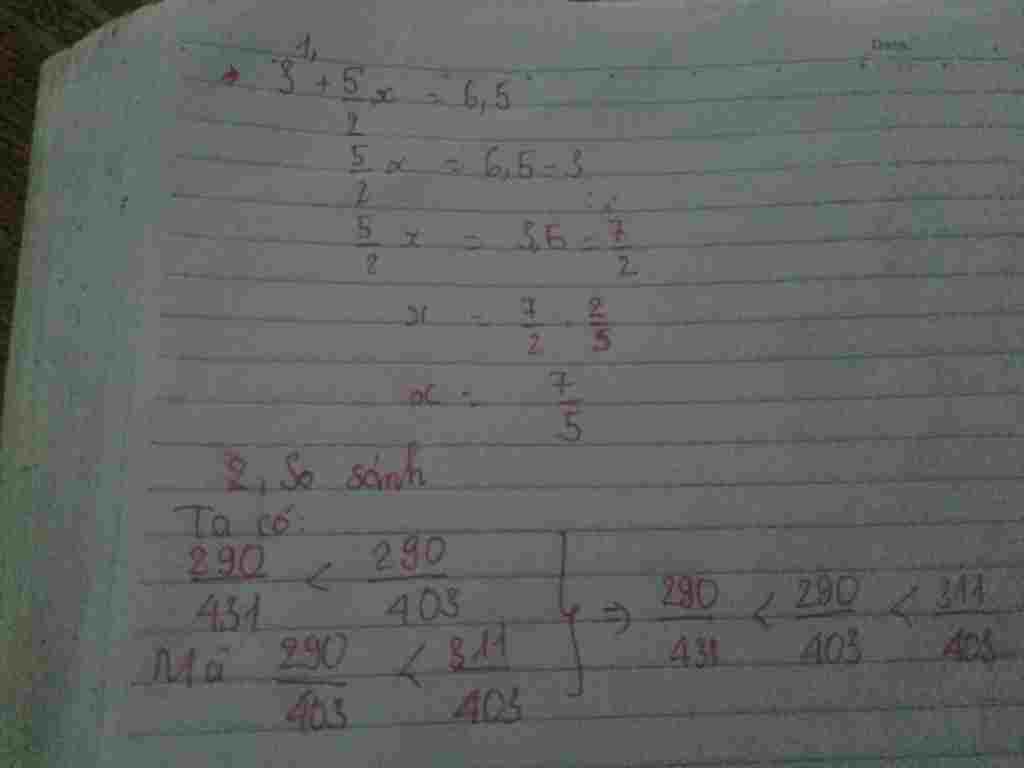 Date.
1,
3 + 5/2 x = 6,5
5/2 x = 6,5 - 3
5/2 x = 3,5 = 7/2
x = 7/2 . 2/5
x = 7/5
2, So sánh
Ta có:
290/431 < 290/403
Mà 290/403 < 311/403
=> 290/431 < 290/403 < 311/403